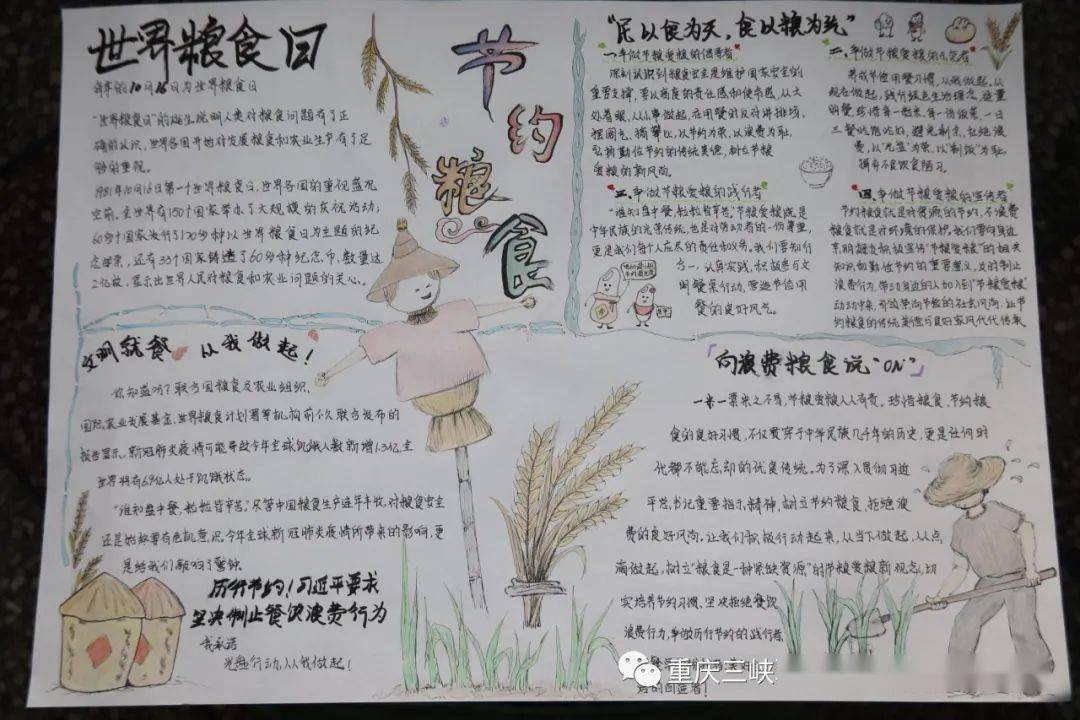 世界粮食日
每年的10月16日为世界粮食日
"世界粮食日"的诞生说明人类对粮食问题有了正
确的认识,世界各国开始对发展粮食和农业生产有了足
够的重视。
1981年10月16日第一个世界粮食日,世界各国的重视盛况
空前。全世界有150个国家举办了大规模的庆祝活动;
60多个国家发行了120多种以世界粮食日为主题的纪
念邮票,还有33个国家铸造了60多种纪念币,数量达
2亿枚,显示出世界人民对粮食和农业问题的关心。
节约
粮食
"民以食为天,食以粮为先"
一.争做节粮爱粮的倡导者
深刻认识到粮食安全是维护国家安全的
重要支撑,要以高度的责任感和使命感,从大
处着眼,从小事做起,在用餐时反对讲排场、
摆阔气、搞攀比,以节约为荣,以浪费为耻,
弘扬勤俭节约的传统美德,树立节粮
爱粮的新风尚。
二.争做节粮爱粮的示范者
养成节俭用餐习惯,从我做起,从
现在做起,践行绿色生活理念,适量
明餐,珍惜每一粒米,每一饭菜,一日
三餐吃饱吃好,避免剩余,杜绝浪
费,以"光盘"为荣,以"剩饭"为耻,
摒弃不良饮食陋习。
三.争做节粮爱粮的践行者
"谁知盘中餐,粒粒皆辛苦"节粮爱粮既是
中华民族的优秀传统,也是对劳动者的一份尊重,
更是我们每个人应尽的责任和义务。我们要知行
合一,认真实践,积极参与文
明餐桌行动,营造节俭用
餐的良好风气。
四.争做节粮爱粮的宣传者
节约粮食就是对资源的节约,不浪费
粮食就是对环境的保护,我们要向身边
亲朋邻友积极宣传"节粮爱粮"的相关
知识和勤俭节约的重要意义,及时制止
浪费行为,带动身边的人加入到"节粮爱粮"
动动中来,引领崇尚节俭的社会风尚,让节
约粮食的传统美德与良好家风代代传承
文明就食 从我做起!
你知道吗?联合国粮食及农业组织、
国际农业发展基金、世界粮食计划署等机构前个次联合发布的
报告显示,新冠肺炎疫情可能导致今年全球饥饿人数新增1.3亿,全
世界将有6.9亿人处于饥饿状态。
"谁知盘中餐,粒粒皆辛苦,"尽管中国粮食生产连年丰收,对粮食安全
还是始终要有危机意识,今年全球新冠肺炎疫情所带来的影响,更
是给我们敲响了警钟。
厉行节约!习近平要求
坚决制止餐饮浪费行为
我承诺
光盘行动,从我做起!
「向浪费粮食说"ON"」
一米一粟来之不易,节粮爱粮人人有责。珍惜粮食、节约粮
食的良好习惯,不仅贯穿于中华民族几千年的历史,更是任何时
代都不能忘却的优良传统。为了深入贯彻习近
平总书记重要指示精神,树立节约粮食、拒绝浪
费的良好风尚。让我们积极行动起来,从当下做起,从点
滴做起,树立"粮食是一种紧缺资源"的节粮爱粮新观念,切
实培养节约习惯,坚决拒绝餐饮
浪费行为,争做厉行节约的践行者
好的回道者!
重庆三峡